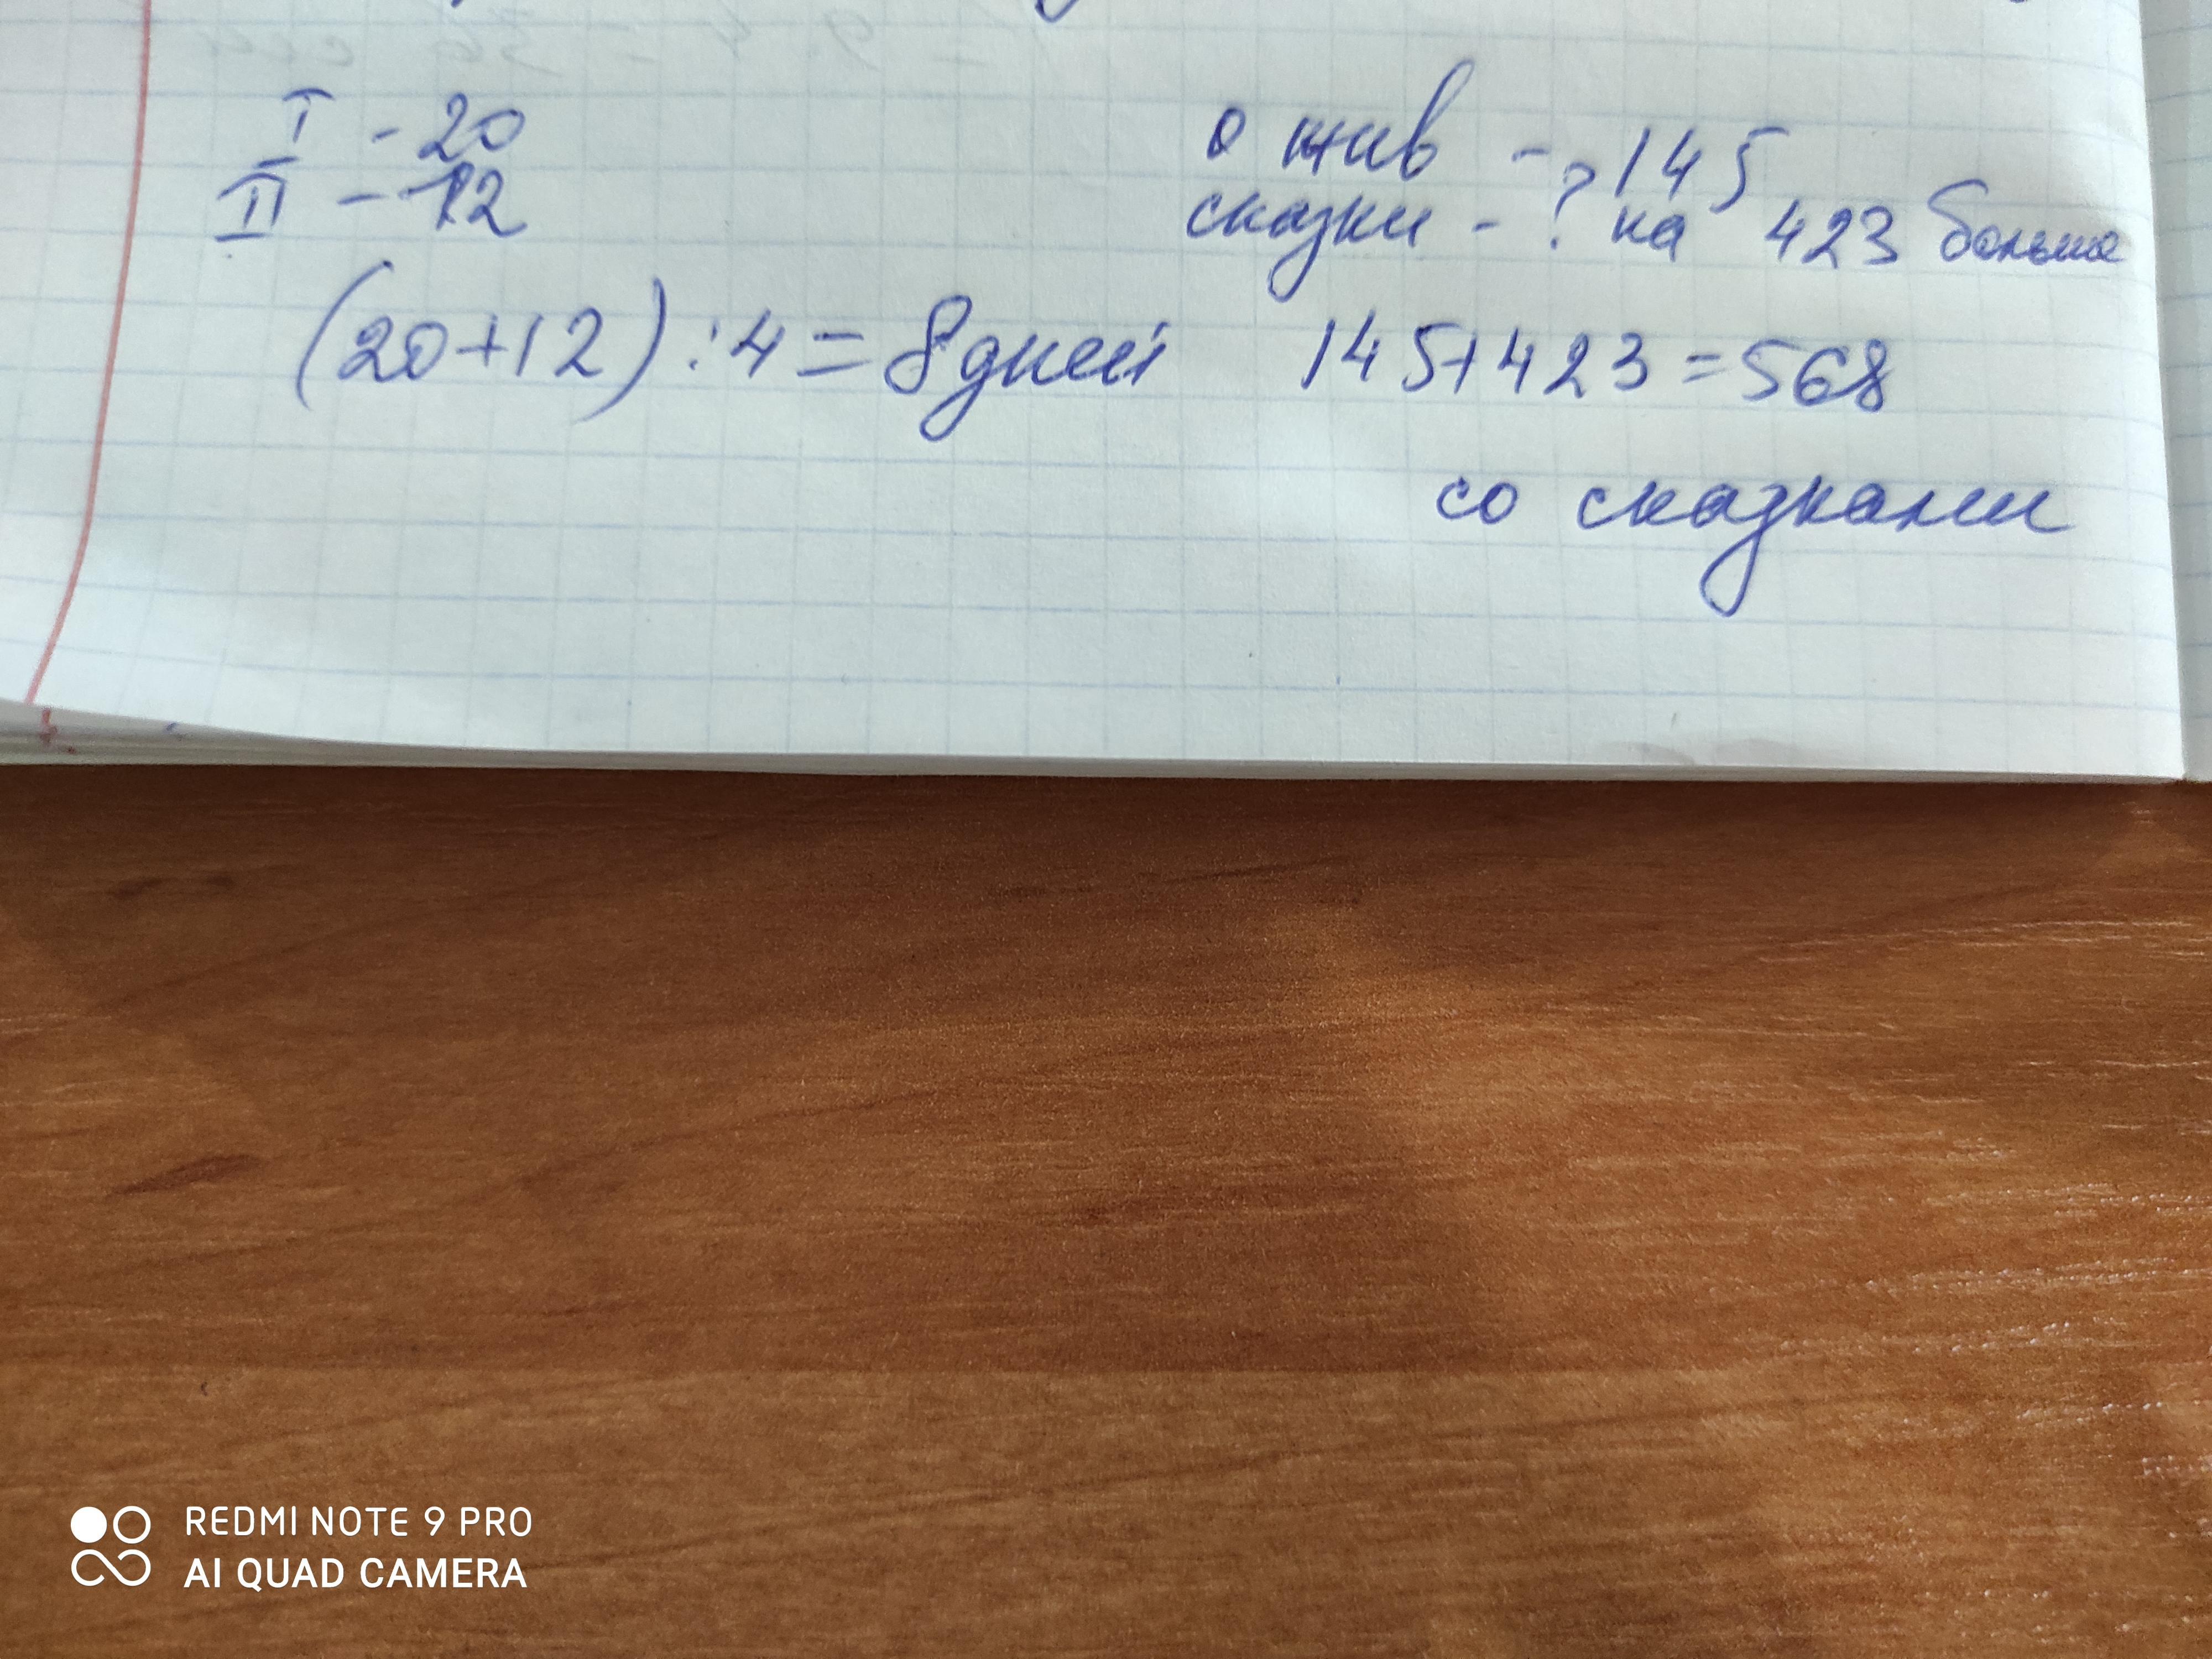 I - 20
II - 12
(20+12):4=8дней
о жив - 145
сказки - ? на 423 больше
145+423=568
со сказками
REDMI NOTE 9 PRO
AI QUAD CAMERA